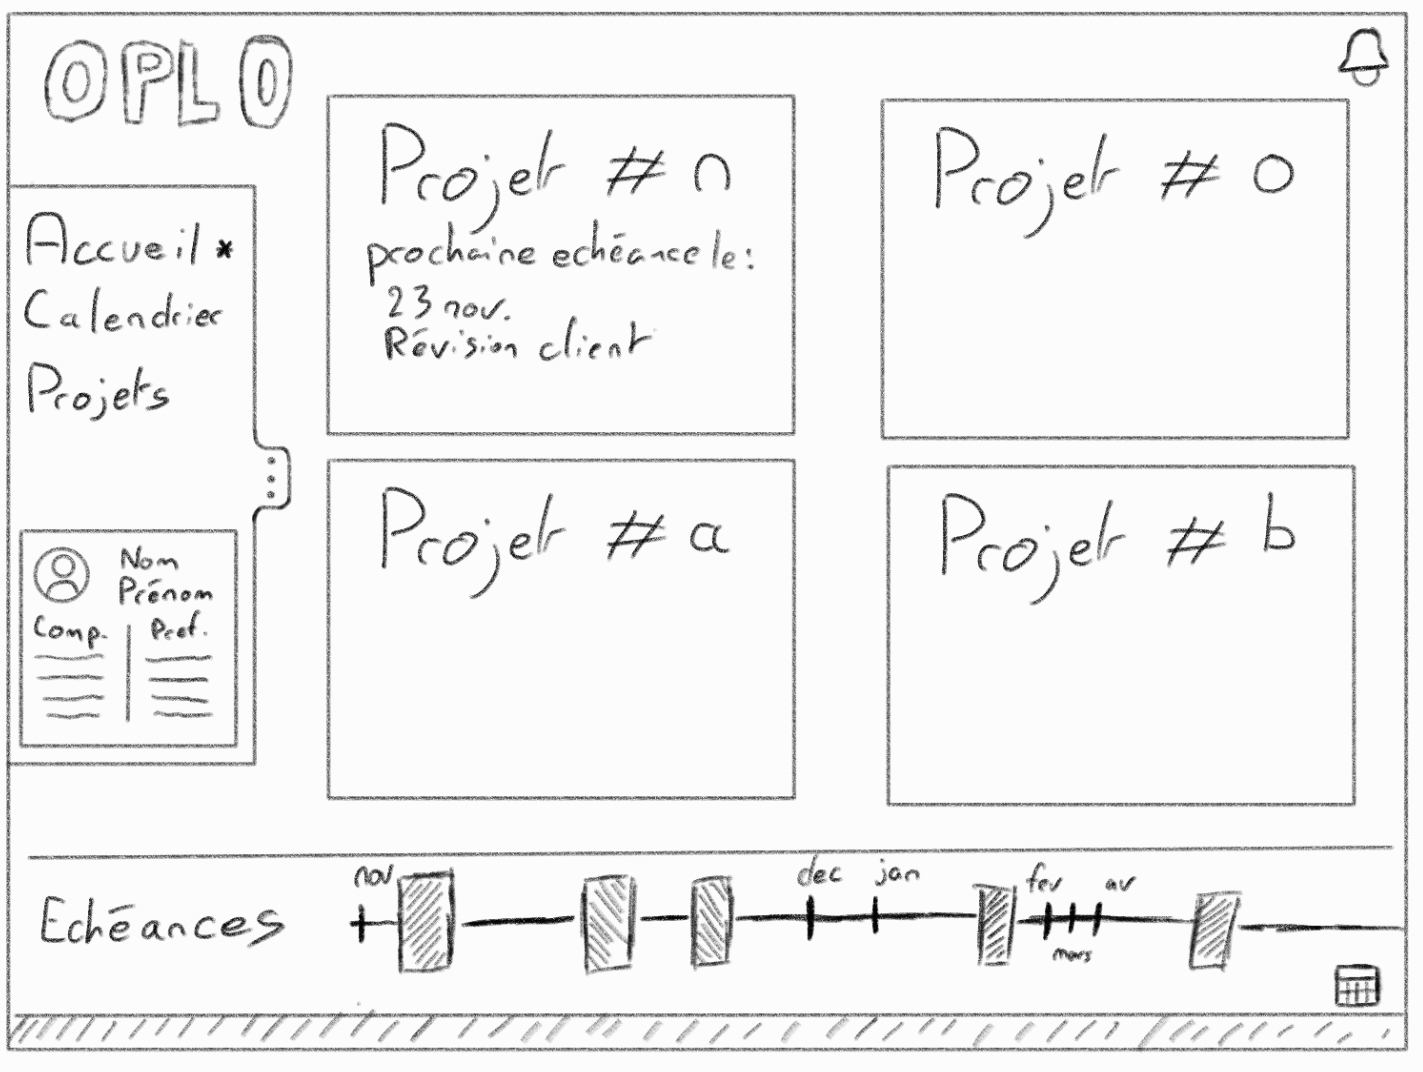 OPLO
Accueil *
Calendrier
Projets
Nom
Prénom
Comp.
Pref.
Projet # n
prochaine echéance le:
23 nov.
Révision client
Projet # o
Projet # a
Projet # b
Echéances
nov
dec
jan
fev
mars
av